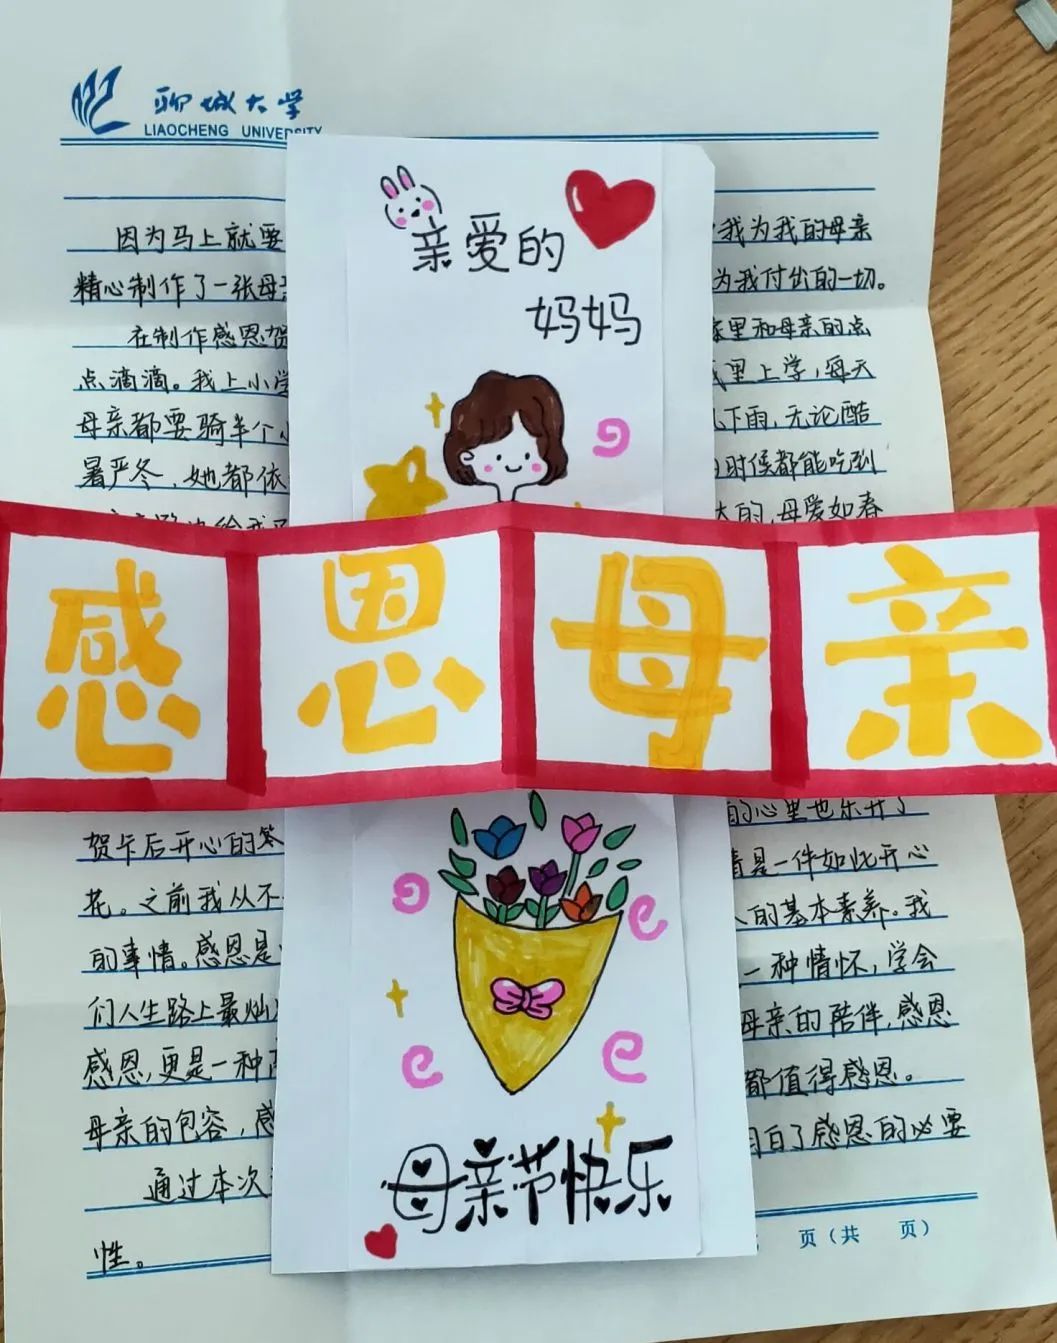 聊城大学
LIAOCHENG UNIVERSITY
因为马上就要
我为我的母亲
精心制作了一张母
为我付出的一切。
在制作感恩贺
里和母亲的点
点滴滴。我上小学
里上学，每天
母亲都要骑半个
下雨，无论酷
暑严冬，她都依
时候都能吃到
的，母爱如春
亲爱的
妈妈
感恩母亲
的心里也乐开了
贺卡后开心的笑
是一件如此开心
花。之前我从不
的基本素养。我
的事情。感恩是
一种情怀，学会
们人生路上最灿
母亲的陪伴，感恩
感恩，更是一种
都值得感恩。
母亲的包容，感
明白了感恩的必要
通过本次
性。
母亲节快乐
页（共 页）